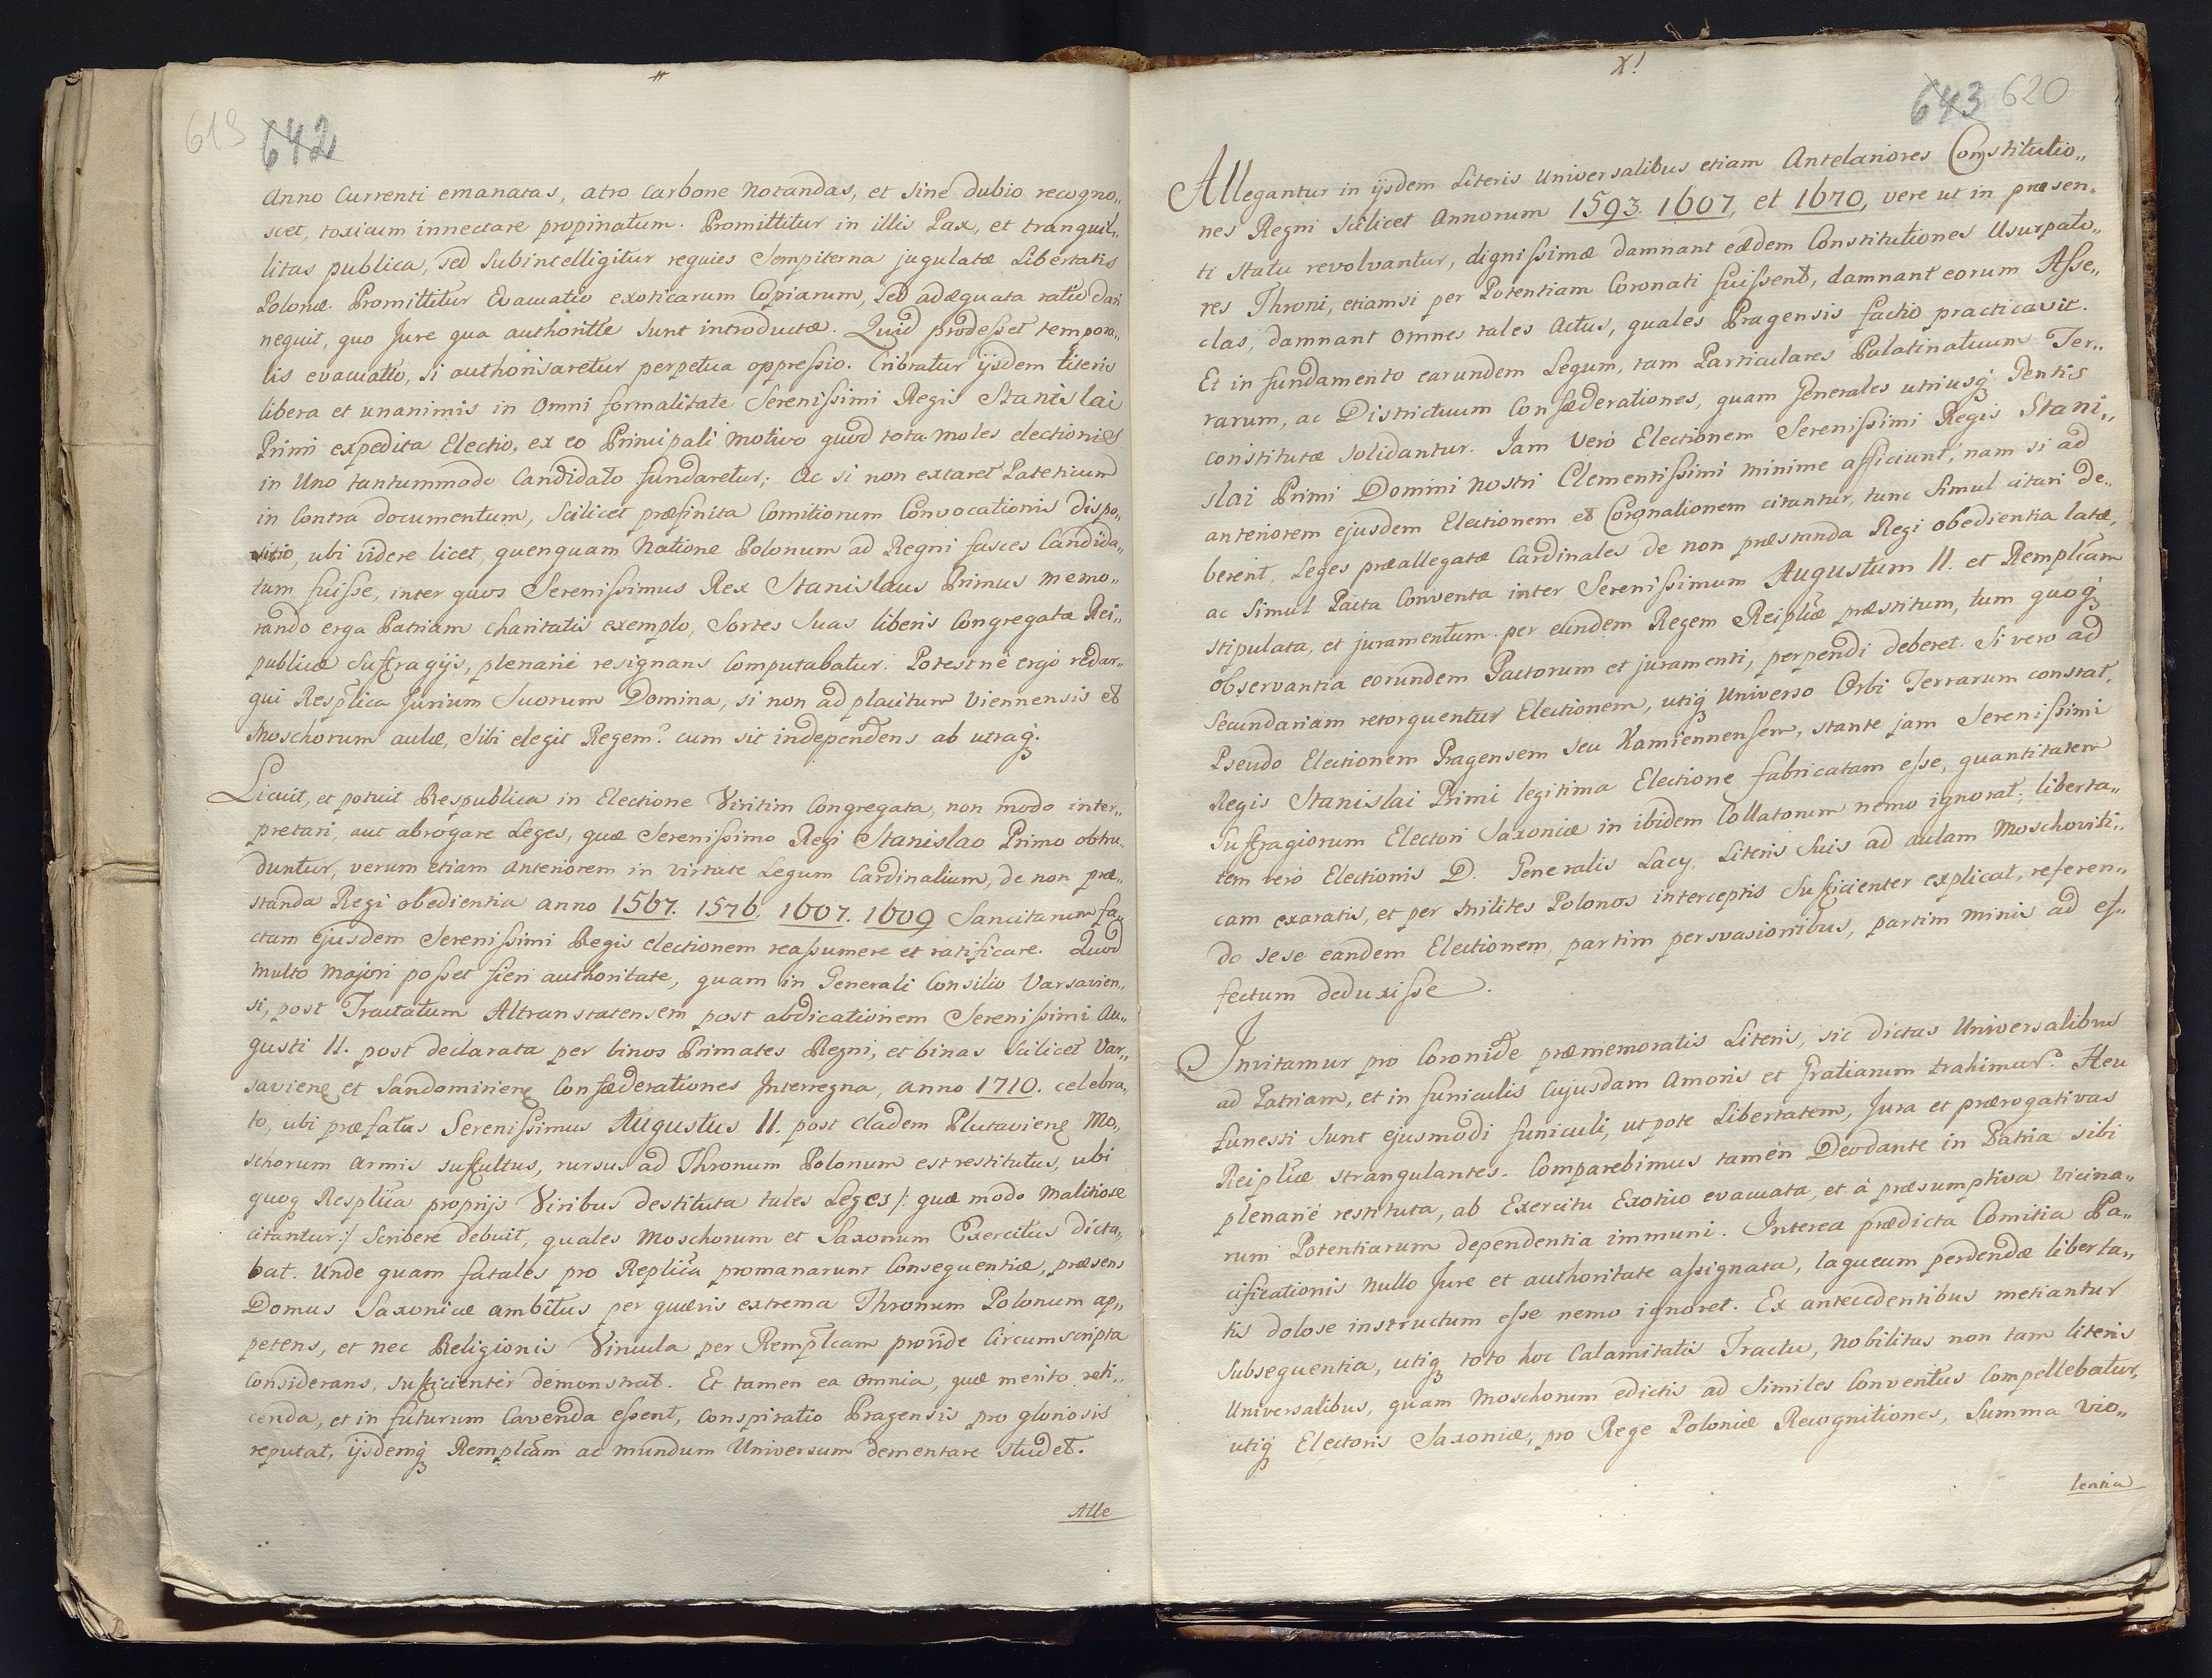 619 642
Anno Currenti emanatas, atro Carbone Notandas, et sine dubio recogno„
scet, toxicum innectare propinatum. Promittitur in illis Pax, et tranquil„
litas publica, sed Subintelligitur requies Sempiterna jugulatæ Libertatis
Polonæ. Promittitur Evacuatio exoticarum Copiarum, sed adæquata ratio dari
nequit, quo Jure qua authoritte sunt introductæ. Quid prodesset tempora„
lis evacuatio, si authorisaretur perpetua oppressio. Cribratur ijsdem literis
libera et unanimis in Omni formalitate Serenissimi Regis Stanislai
Primi expedita Electio, ex eo Principali Motivo quod tota moles electionis
in Uno tantummodo Candidato fundaretur; Ac si non extaret Patericum
in Contra documentum, Scilicet præfinita Comitiorum Convocationis dispo„
sitio, ubi videre licet, quenquam Natione Polonum ad Regni fasces Candida„
tum fuisse, inter quos Serenissimus Rex Stanislaus Primus memo„
rando erga Patriam Charitatis exemplo, Sortes Suas liberis Congregatæ Rei„
publicæ Suffragijs, plenarie resignans Computabatur. Potestne ergo redar„
gui Resplica Jurium Suorum Domina, si non ad placitum Viennensis et
Moschorum aulæ, Sibi elegit Regem? cum sit independens ab utraq.
Licuit, et potuit Respublica in Electione Viritim Congregata, non modo inter„
pretari, aut abrogare Leges, quæ Serenissimo Regi Stanislao Primo obtru„
duntur, verum etiam Anteriorem in virtute Legum Cardinalium, de non præ„
standa Regi obedientia anno 1567. 1576. 1607. 1609 Sancitarum fa„
ctam ejusdem Serenissimi Regis electionem reassumere et ratificare. Quod
multo Majori posset fieri authoritate, quam in Generali Consilio Varsavien„
si, post Tractatum Altranstatensem post abdicationem Serenissimi Au„
gusti II. post declarata per binos Primates Regni, et binas Scilicet Var„
saviene et Sandomiriene Confæderationes Interregna, anno 1710. celebra„
to, ubi præfatus Serenissimus Augustus II. post Cladem Plutaviene Mo„
schorum Armis suffultus, rursus ad Thronum Polonum est restitutus, ubi
quoq Resplica proprijs Viribus destituta tales Leges /: quæ modo Malitiose
citantur:/ Scribere debuit, quales Moschorum et Saxonum Exercitus dicta„
bat. Unde quam fatales pro Replica promanarunt Consequentiæ, præsens
Domus Saxonicæ ambitus per quæris extrema Thronum Polonum ap„
petens, et nec Religionis Vincula per Remplcam provide Circumscripta
Considerans, sufficienter demonstrat. Et tamen ea Omnia, quæ merito reti„
cenda, et in futurum Cavenda essent, Conspiratio Pragensis pro gloriosis
reputat, ijsdemq Remplcam ac mundum Universum dementare studet.
Alle
XI
643 620
Allegantur in ijsdem Literis Universalibus etiam Antelariores Constitutio„
nes Regni Scilicet Annorum 1593. 1607, et 1670, vere ut in præsen„
ti Statu revolvantur, dignissimæ damnant eædem Constitutiones Usurpato„
res Throni, etiamsi per Potentiam Coronati fuissent, damnant eorum Asse„
clas, damnant Omnes tales Actus, quales Pragensis factio practicavit.
Et in fundamento earundem Legum, tam Particulares Palatinatuum Ter„
rarum, ac Districtuum Confæderationes, quam Generales utriusq Gentis
constitutæ solidantur. Jam vero Electionem Serenissimi Regis Stani„
slai Primi Domini Nostri Clementissimi minime afficiunt, nam si ad
anteriorem ejusdem Electionem et Coronationem citantur, tunc Simul citari de„
berent, Leges præallegatæ Cardinales de non præstanda Regi obedientia latæ,
ac Simul Pacta Conventa inter Serenissimum Augustum II. et Remplcam
stipulata, et juramentum per eundem Regem Reiplicæ præstitum, tum quoq
observantia eorundem Pactorum et juramenti, perpendi deberet. Si vero ad
Secundariam retorquentur Electionem, utiq Universo Orbi Terrarum constat,
Pseudo Electionem Pragensem seu Kamiennensem, stante jam Serenissimi
Regis Stanislai Primi legitima Electione fabricatam esse, quantitatem
Suffragiorum Electori Saxoniæ in ibidem Collatorum nemo ignorat; liberta„
tem vero Electionis D. Generalis Lacy, Literis Suis ad aulam Moschoviti„
cam exaratis, et per Milites Polonos interceptis Sufficienter explicat, referen„
do sese eandem Electionem, partim persvasionibus, partim minis ad ef„
fectum deduxisse.
Invitamur pro Coronide præmemoratis Literis, sic dictas Universalibus
ad Patriam, et in funiculis Cujusdam Amoris et Gratiarum trahimur? Heu
funesti Sunt ejusmodi funiculi, utpote Libertatem, Jura et prærogativas
Reiplicæ strangulantes. Comparebimus tamen Deodante in Patria sibi
plenarie restituta, ab Exercitu Exotico evacuata, et à præsumptiva vicina„
rum Potentiarum dependentia immuni. Interea prædicta Comitia Pa„
cificationis Nullo Jure et authoritate assignata, laqueum perdendæ liberta„
tis dolose instructum esse nemo ignoret. Ex antecedentibus metiantur
Subsequentia, utiq toto hoc Calamitatis Tractu, Nobilitas non tam literis
Universalibus, quam Moschorum edictis ad Similes Conventus Compellebatur,
utiq Electoris Saxoniæ, pro Rege Poloniæ Recognitiones, Summa vio„
lentia